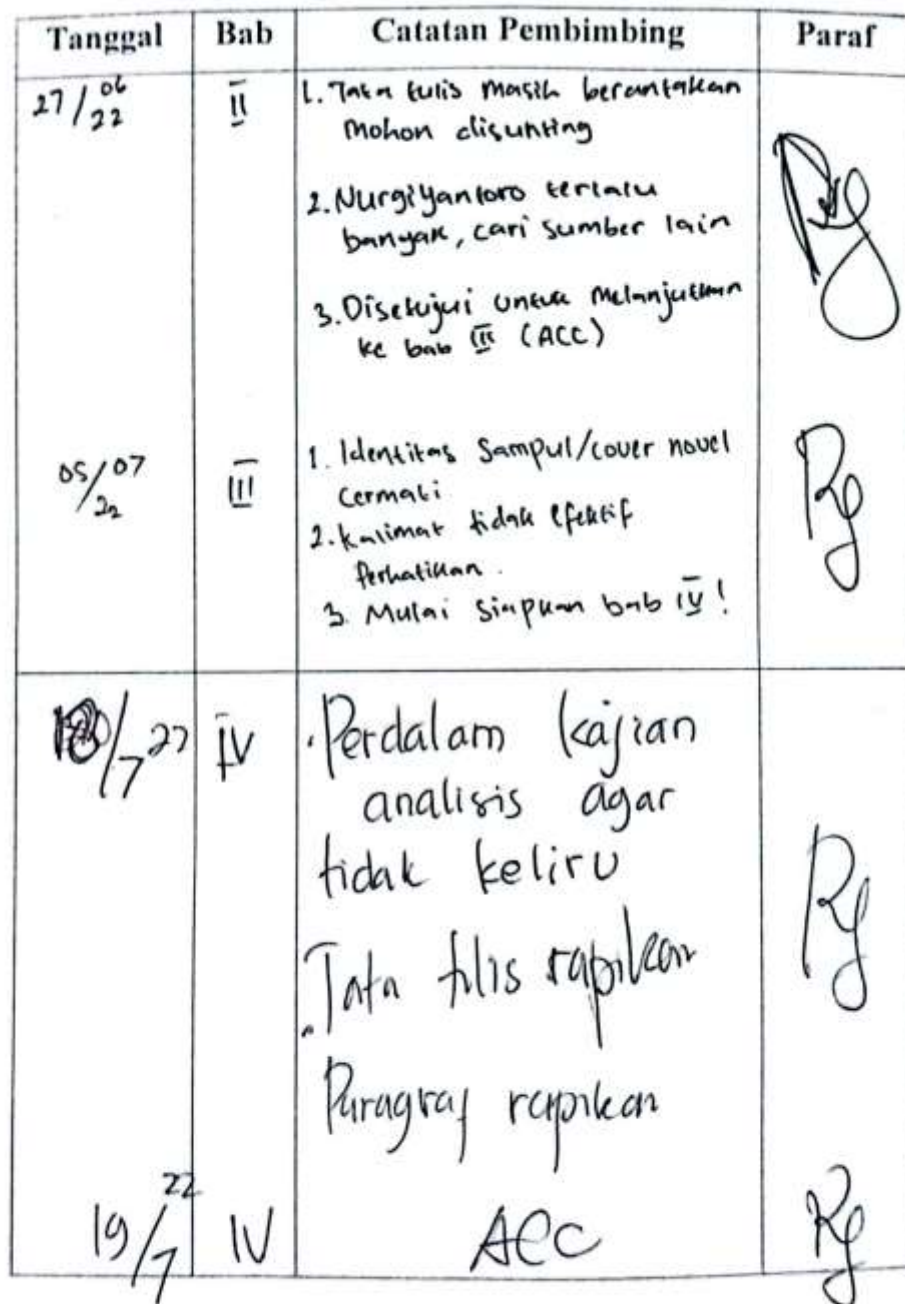 Tanggal Bab Catatan Pembimbing Paraf
27/06/22 II 1. Tata tulis masih berantakan
mohon disunting
2. Nurgiyantoro terlalu
banyak, cari sumber lain
3. Disetujui untuk melanjutkan
ke bab III (ACC)
05/07/22 III 1. Identitas Sampul/cover novel
cermati
2. Kalimat tidak efektif
perhatikan.
3. Mulai siapkan bab IV!
/7 22 IV . Perdalam kajian
analisis agar
tidak keliru
. Tata tulis rapikan
Paragraf rapikan
19/7 22 IV ACC